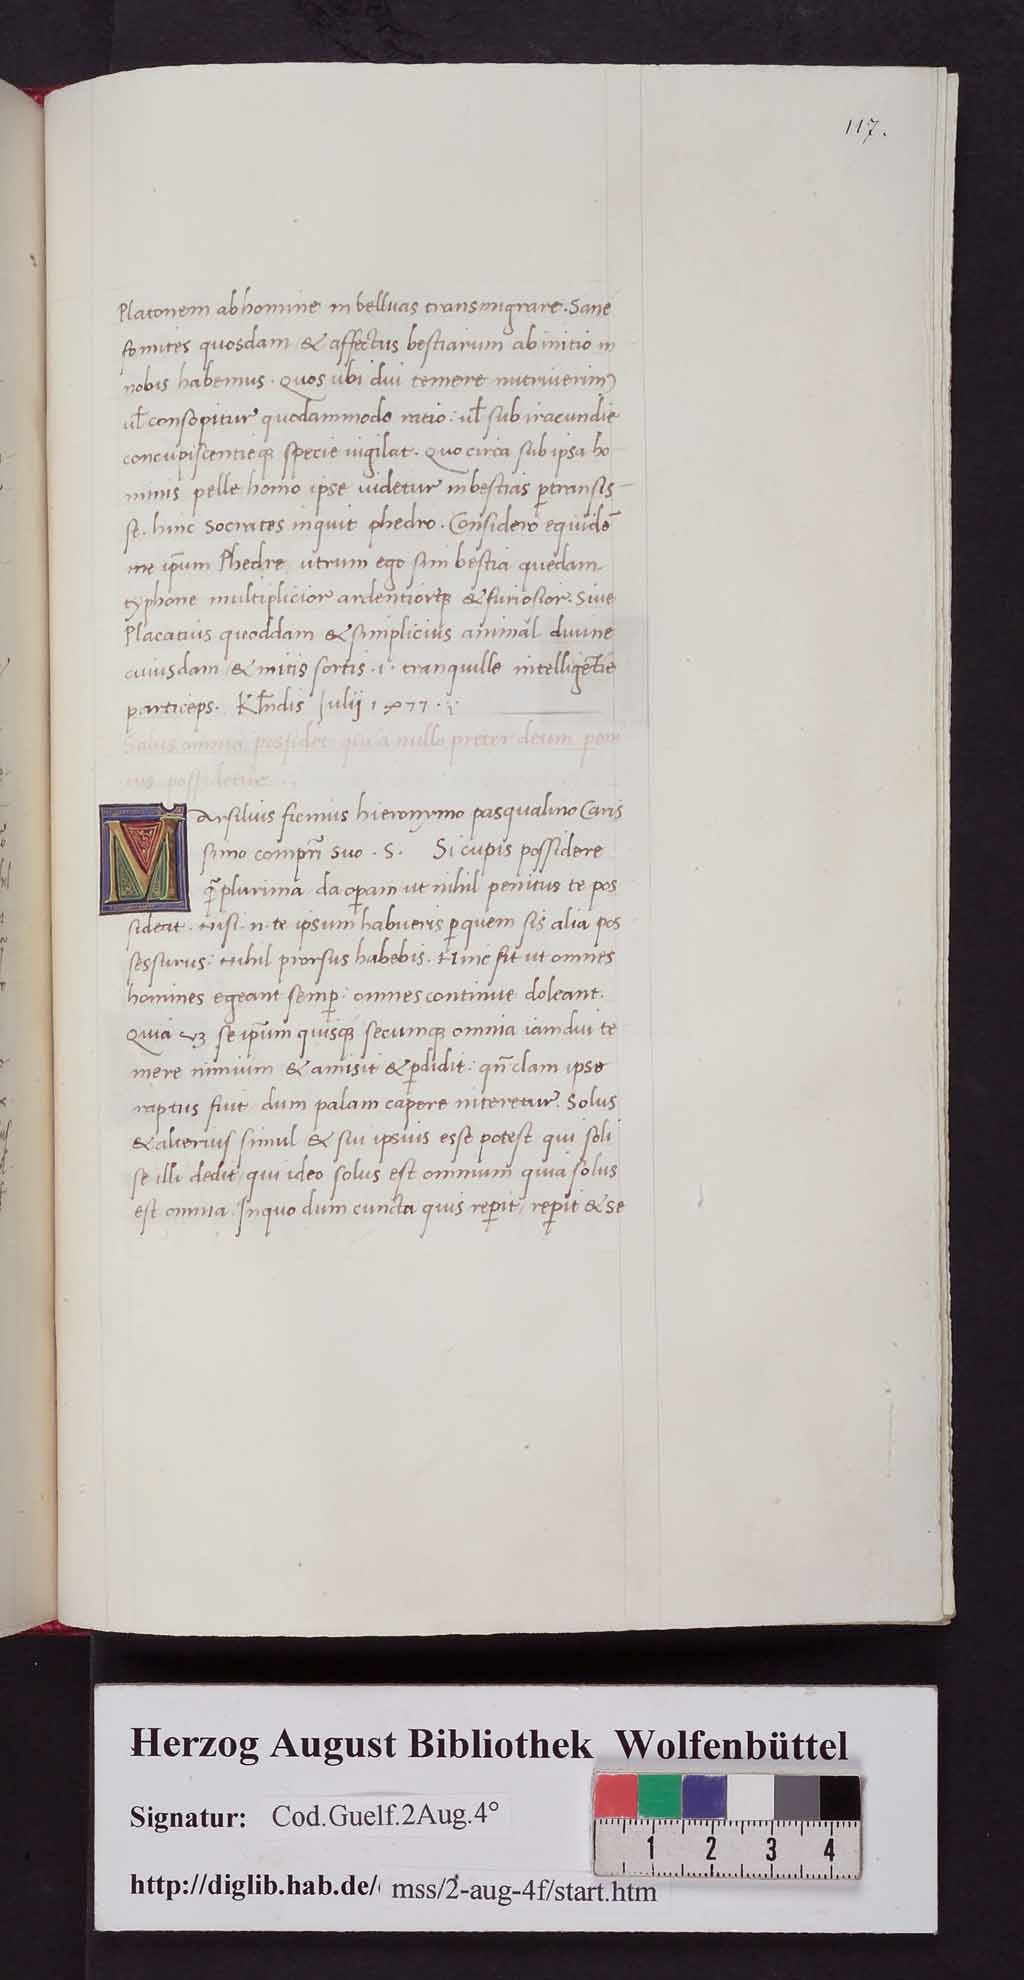 117.
Platonem ab homine in belluas transmigrare. Sane
fomites quosdam & affectus bestiarum ab initio in
nobis habemus. Quos ubi diu temere nutriverimꝰ
ul̄ consopitur quodammodo ratio: ul̄ sub iracundie
concupiscentieqꝫ specie uigilat. Quo circa sub ipsa ho
minis pelle homo ipse uidetur in bestias ꝑtransis
se. hinc Socrates inquit phedro. Considero equidē
me ip̄um Phedre utrum ego sim bestia quedam
typhone multiplicior ardentiorqꝫ & furiosior. Sive
Placatius quoddam & simplicius animal diuine
cuiusdam & mitis sortis .i. tranquille intelligētie
particeps. Kl̄ndis Iulij 1477.
Solus omnia possidet qui a nullo preter deum peni
tus possidetur.
Marsilius ficinius hieronymo pasqualino Caris
simo comp̄ri suo . S. Si cupis possidere
q̄plurima da oꝑam ut nihil penitus te pos
sideat. Nisi .n. te ipsum habueris ꝑ quem sis alia pos
sessurus: Nihil prorsus habebis. Hinc fit ut omnes
homines egeant semꝑ: omnes continue doleant.
Quia uꝫ se ip̄um quisqꝫ secumqꝫ omnia iamdiu te
mere nimium & amisit & ꝑdidit: qn̄ clam ipse
raptus fuit dum palam capere niteretur. Solus
& alterius simul & sui ipsius esse potest qui soli
se illi dedit / qui ideo solus est omnium quia solus
est omnia. In quo dum cuncta quis reꝑit / reꝑit & se
Herzog August Bibliothek Wolfenbüttel
Signatur: Cod.Guelf.2Aug.4°
http://diglib.hab.de/ mss/2-aug-4f/start.htm
1 2 3 4